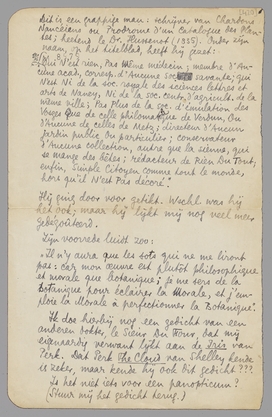 Dit is een grappige man: schrijver van Chardons
Nancéiens ou Prodrome d'un Catalogue des Plan-
tes; heeft le Dr. Hussenot (1835). Onder zijn
naam, op het titelblad, heeft hij gezet:
Qui N'est rien, Pas même médecin; membre d'Au-
cune acad., corresp. d'Aucune soc. savante; qui
N'est Ni de la soc. royale des sciences lettres et
arts de Nancy, Ni de la soc. cent. d'agricult. de la
même ville; Pas plus de la soc. d'émulation des
Vosges que de celle philomatique de Verdun, Ou
d'Aucune de celles de Metz; directeur d'Aucun
Jardin public Ou particulier; conservateur
D'Aucune collection, autre que la sienne, qui
se mange des bêtes; rédacteur de Rien Du Tout,
enfin, simple Citoyen comme tout le monde,
hors qu'il N'est Pas décoré.
Hij ging door voor getikt. Wschl. was hij
het ook; maar hij lijkt mij nog veel meer
gebezouteerd.
Zijn voorrede luidt zoo:
"Il n'y aura que les sots qui ne me liront
pas: car mon œuvre est plutôt philosophique
et morale que botanique; je me sers de la
Botanique pour éclairer la Morale, et j'em-
ploie la Morale à perfectionner la Botanique."
Ik doe hierbij nog een gedicht van een
anderen dokter, le Sieur Du Four, bat mij
eigenaardig verwant lijkt aan de Iris van
Perk. Dat Perk The Cloud van Shelley kende
is zeker, maar kende hij ook dit gedicht???
Is het niet iets voor een panopticum?
(Stuur mij het gedicht terug.)